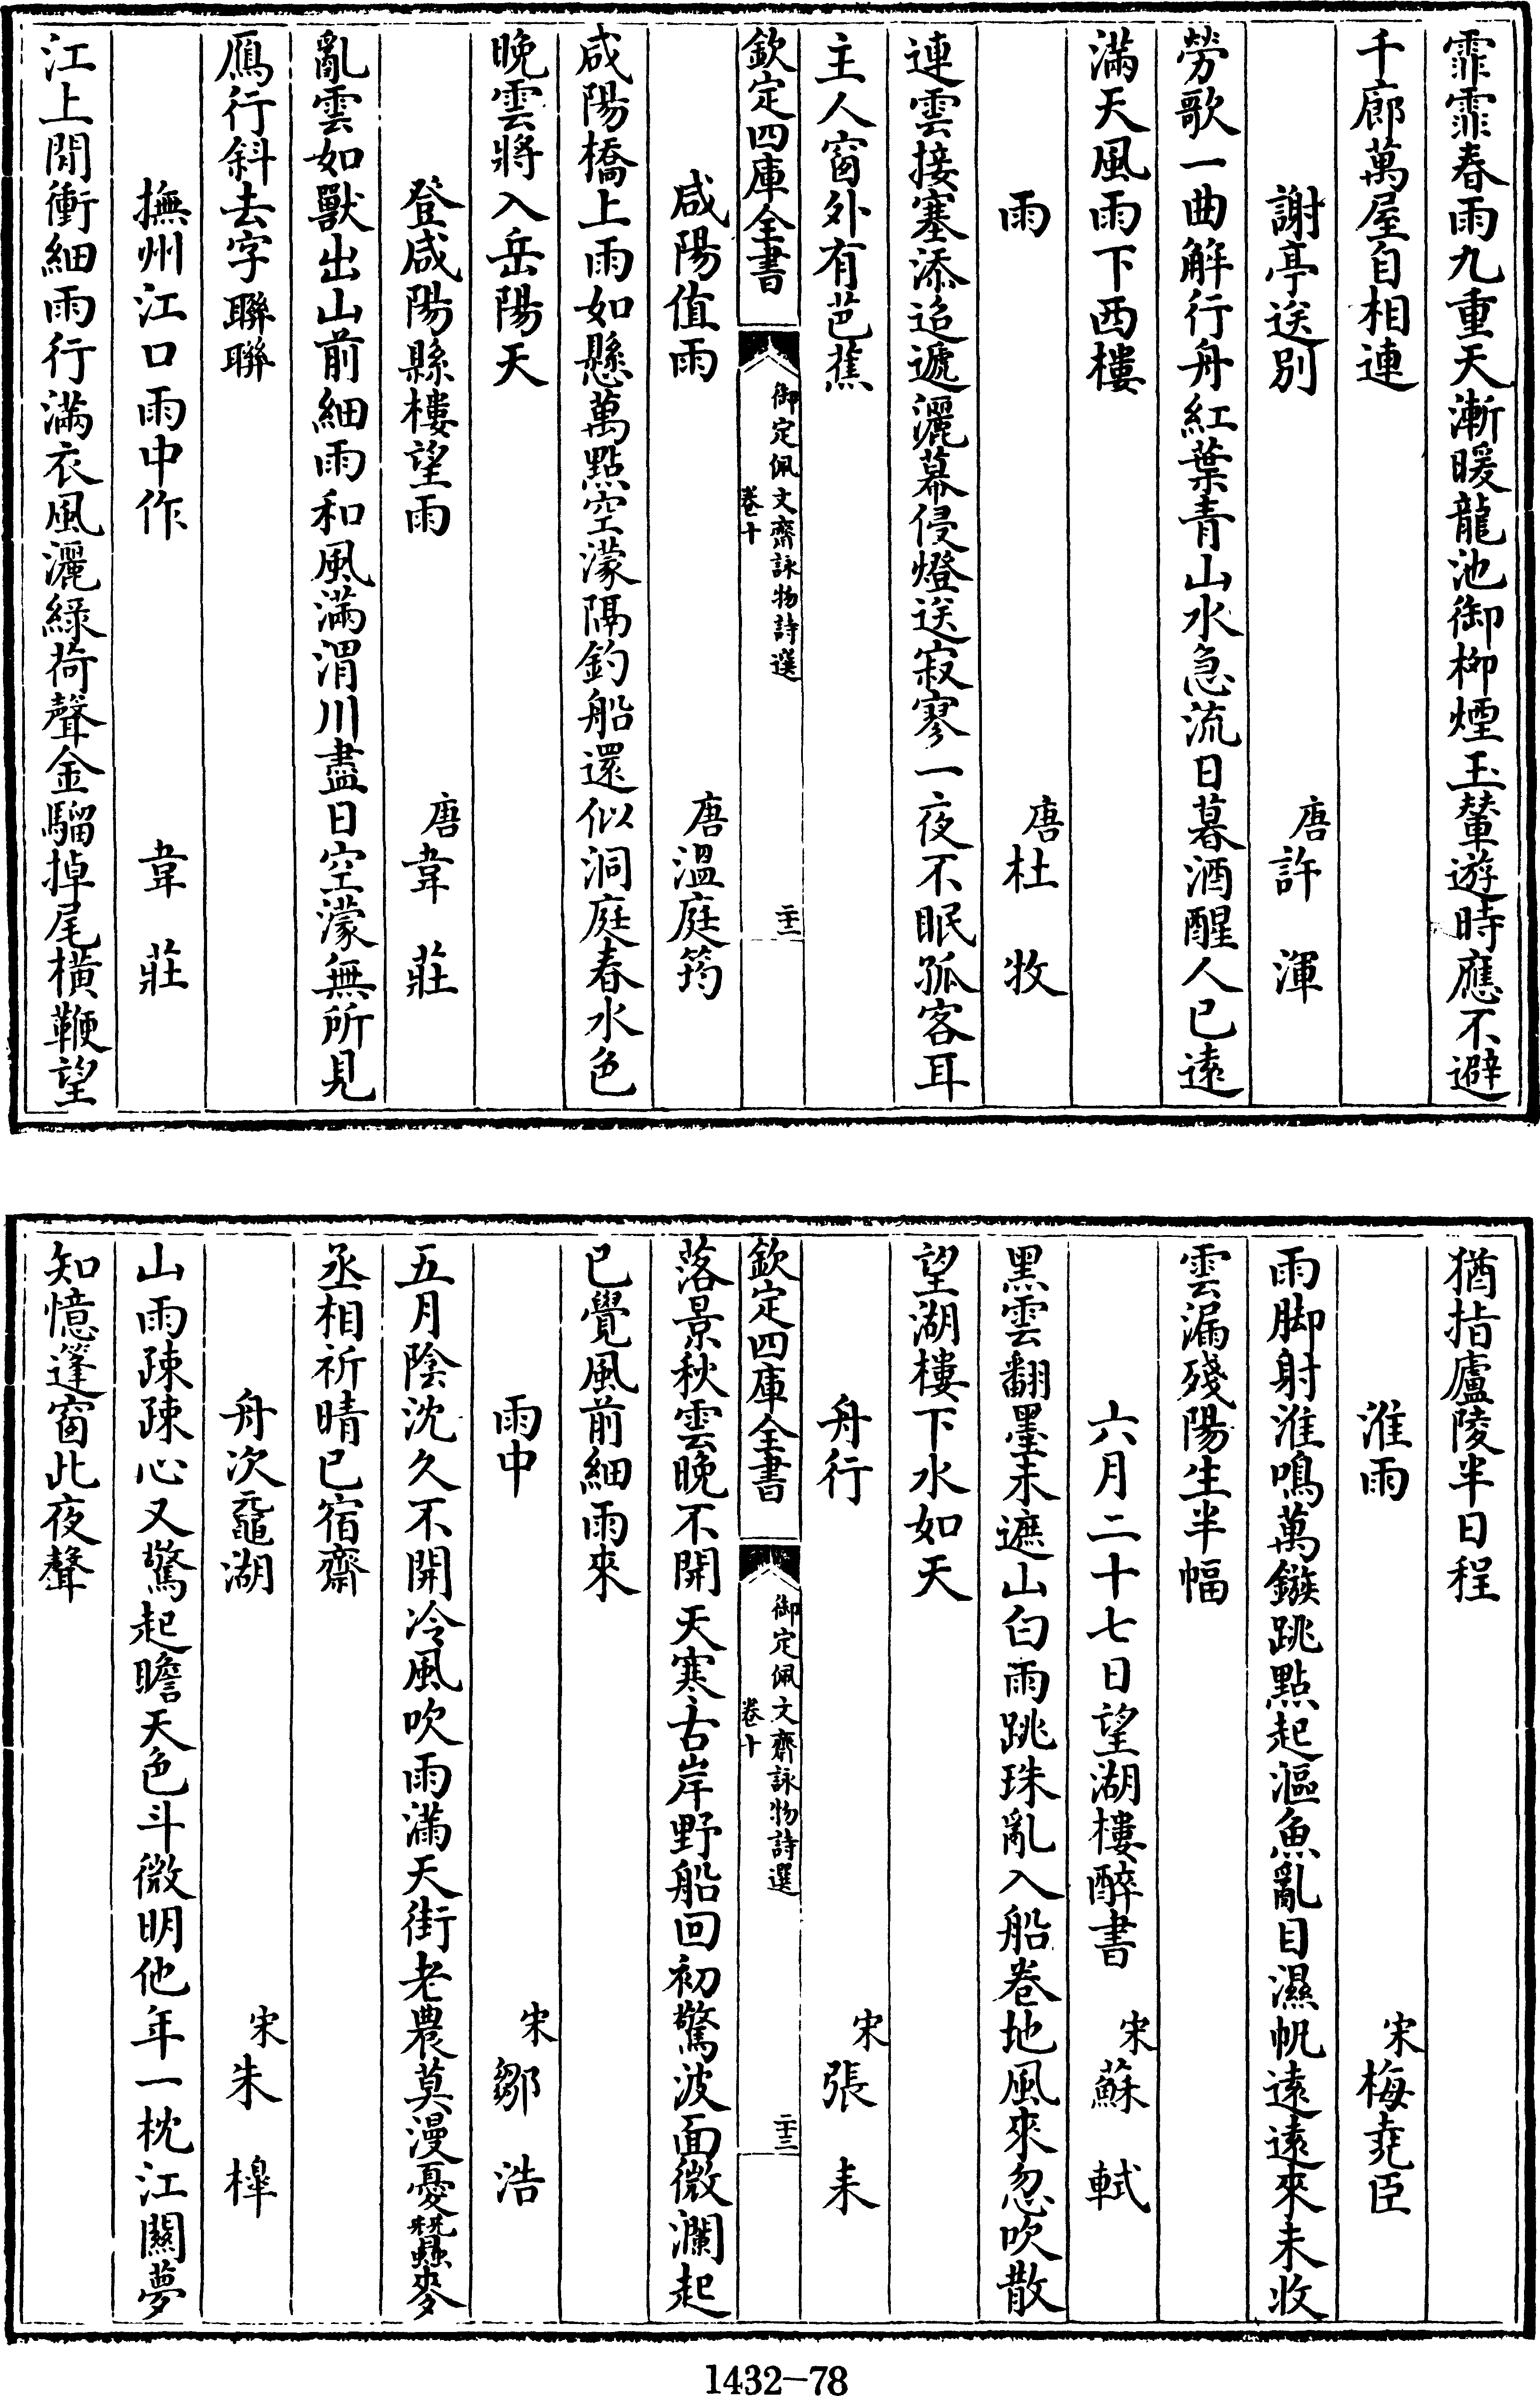 霏霏春雨九重天漸暖龍池御柳煙玉輦遊時應不避
千廊萬屋自相連
謝亭送別 唐許渾
勞歌一曲解行舟紅葉青山水急流日暮酒醒人已遠
滿天風雨下西樓
雨 唐杜牧
連雲接塞添迢遞灑幕侵燈送寂寥一夜不眠孤客耳
主人窗外有芭蕉
欽定四庫全書 御定佩文齋詠物詩選 卷十 二十二
咸陽值雨 唐溫庭筠
咸陽橋上雨如懸萬點空濛隔釣船還似洞庭春水色
晚雲將入岳陽天
登咸陽縣樓望雨 唐韋莊
亂雲如獸出山前細雨和風滿渭川盡日空濛無所見
鴈行斜去字聯聯
撫州江口雨中作 韋莊
江上閒衝細雨行滿衣風灑綠荷聲金騮掉尾橫鞭望
猶指廬陵半日程
淮雨 宋梅堯臣
雨脚射淮鳴萬鏃跳點起漚魚亂目濕帆遠遠來未收
雲漏殘陽生半幅
六月二十七日望湖樓醉書 宋蘇軾
黑雲翻墨未遮山白雨跳珠亂入船卷地風來忽吹散
望湖樓下水如天
舟行 宋張耒
欽定四庫全書 御定佩文齋詠物詩選 卷十 二十三
落景秋雲晚不開天寒古岸野船回初驚波面微瀾起
已覺風前細雨來
雨中 宋鄒浩
五月陰沈久不開冷風吹雨滿天街老農莫漫憂蠶麥
丞相祈晴已宿齋
舟次黿湖 宋朱槔
山雨疎疎心又驚起瞻天色斗微明他年一枕江關夢
知憶篷窗此夜聲
1432-78